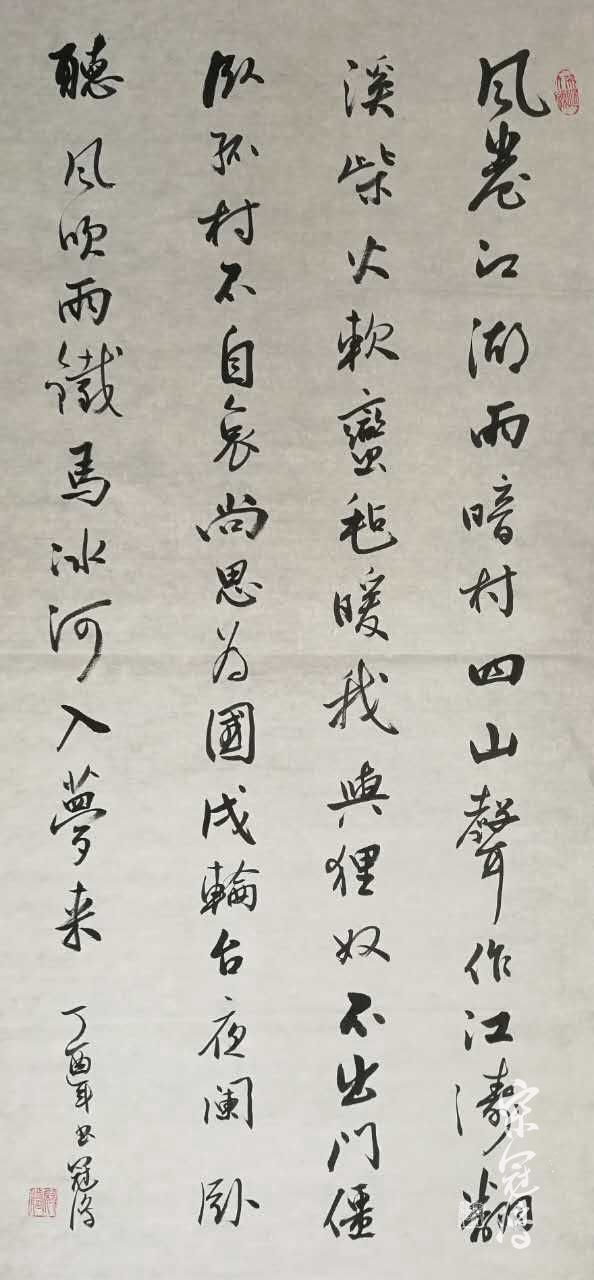 风卷江湖雨暗村四山聲作江濤翻
溪柴火軟蠻毡暖我與狸奴不出门僵
卧孤村不自哀尚思为國戍輪台夜闌卧
聽风吹雨鐵馬冰河入夢来
丁酉年书冠